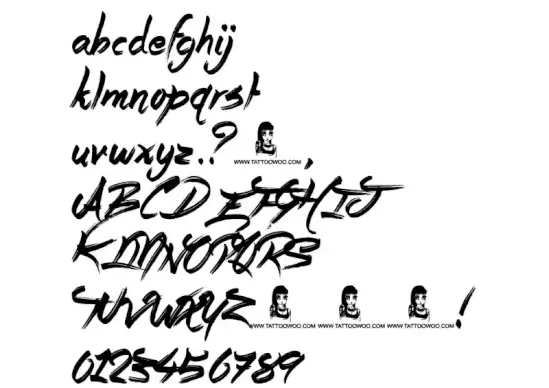 abcdefghij
klmnopqrst
uvwxyz..? WWW.TATTOOWOO.COM ,
ABCDEFGHIJ
KLMNOPQRS
TUVWXYZ WWW.TATTOOWOO.COM WWW.TATTOOWOO.COM WWW.TATTOOWOO.COM !
0123456789